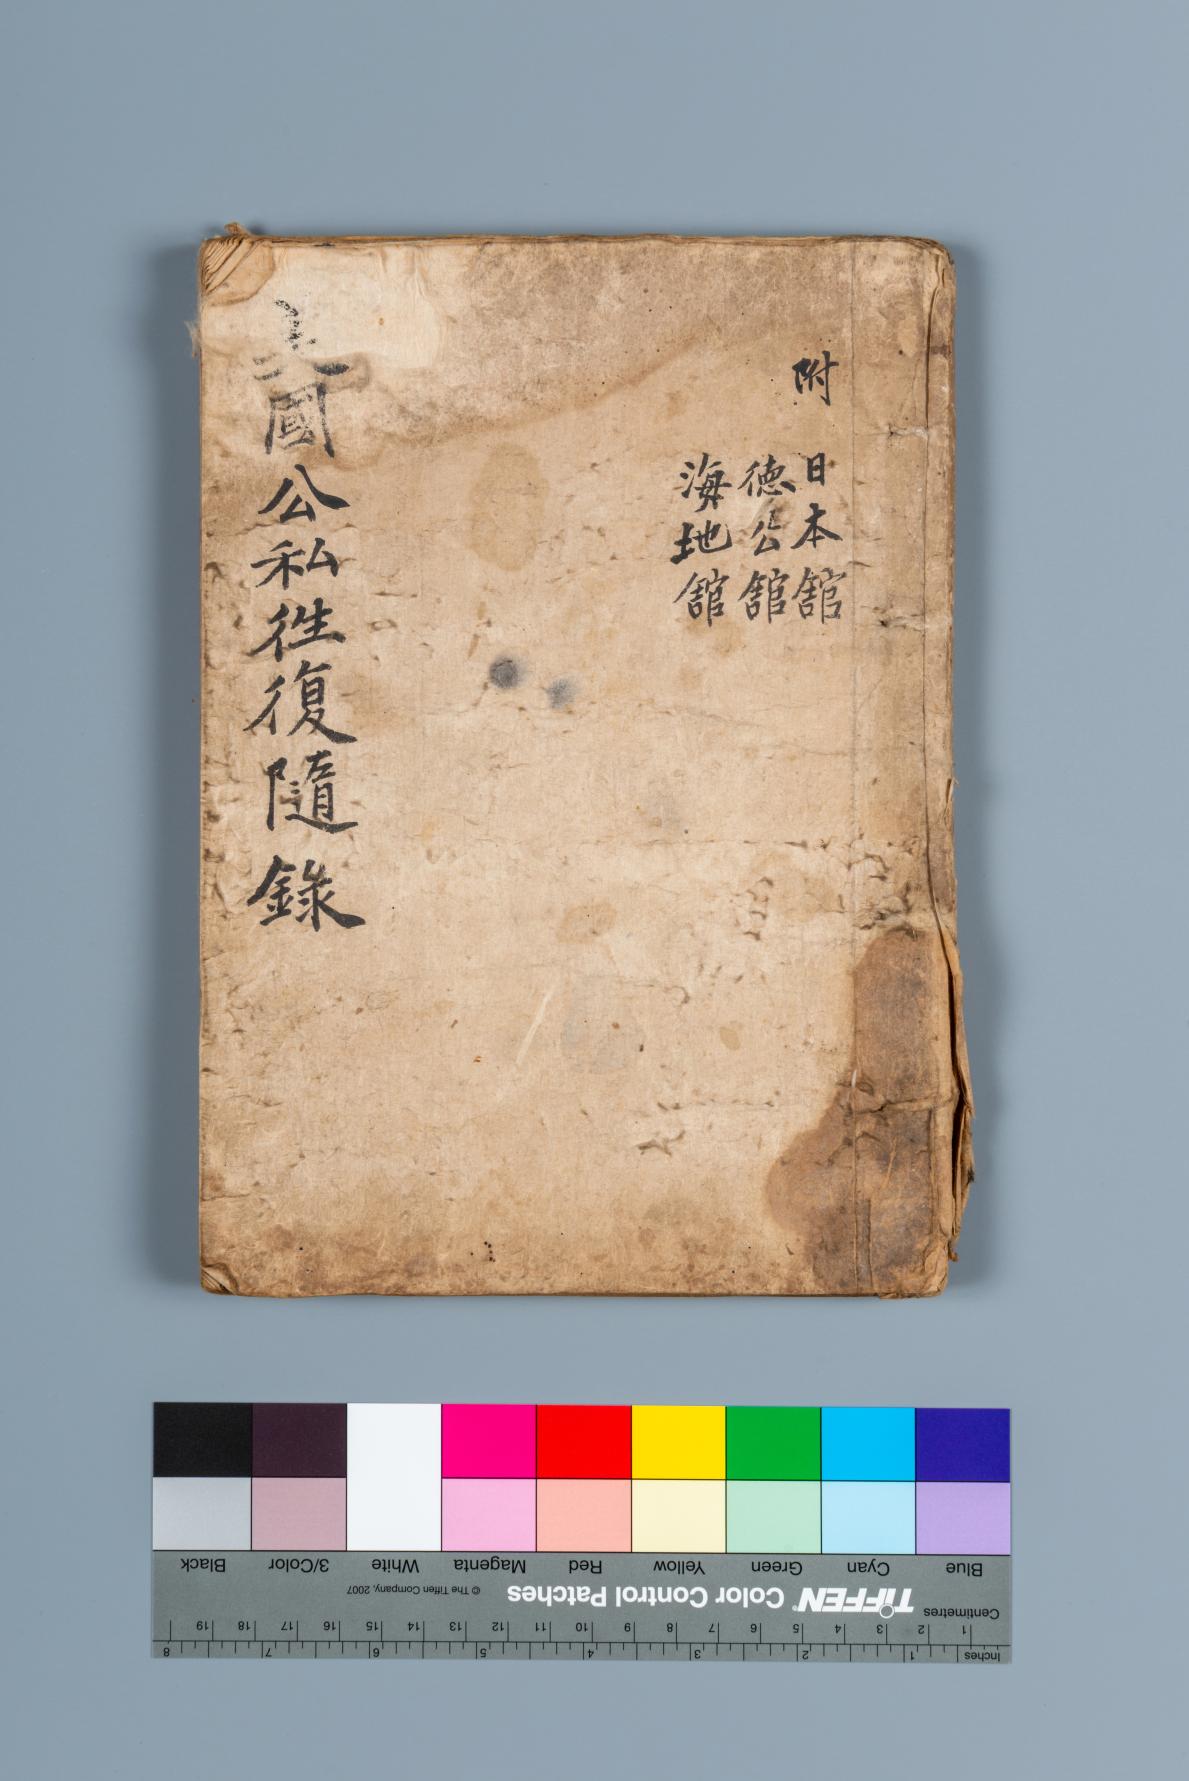 附 日本舘
徳公舘
海地舘
美國公私徃復隨錄
Inches 1 2 3 4 5 6 7 8
Centimetres 1 2 3 4 5 6 7 8 9 10 11 12 13 14 15 16 17 18 19
TIFFEN® Color Control Patches © The Tiffen Company, 2007
Blue Cyan Green Yellow Red Magenta White 3/Color Black